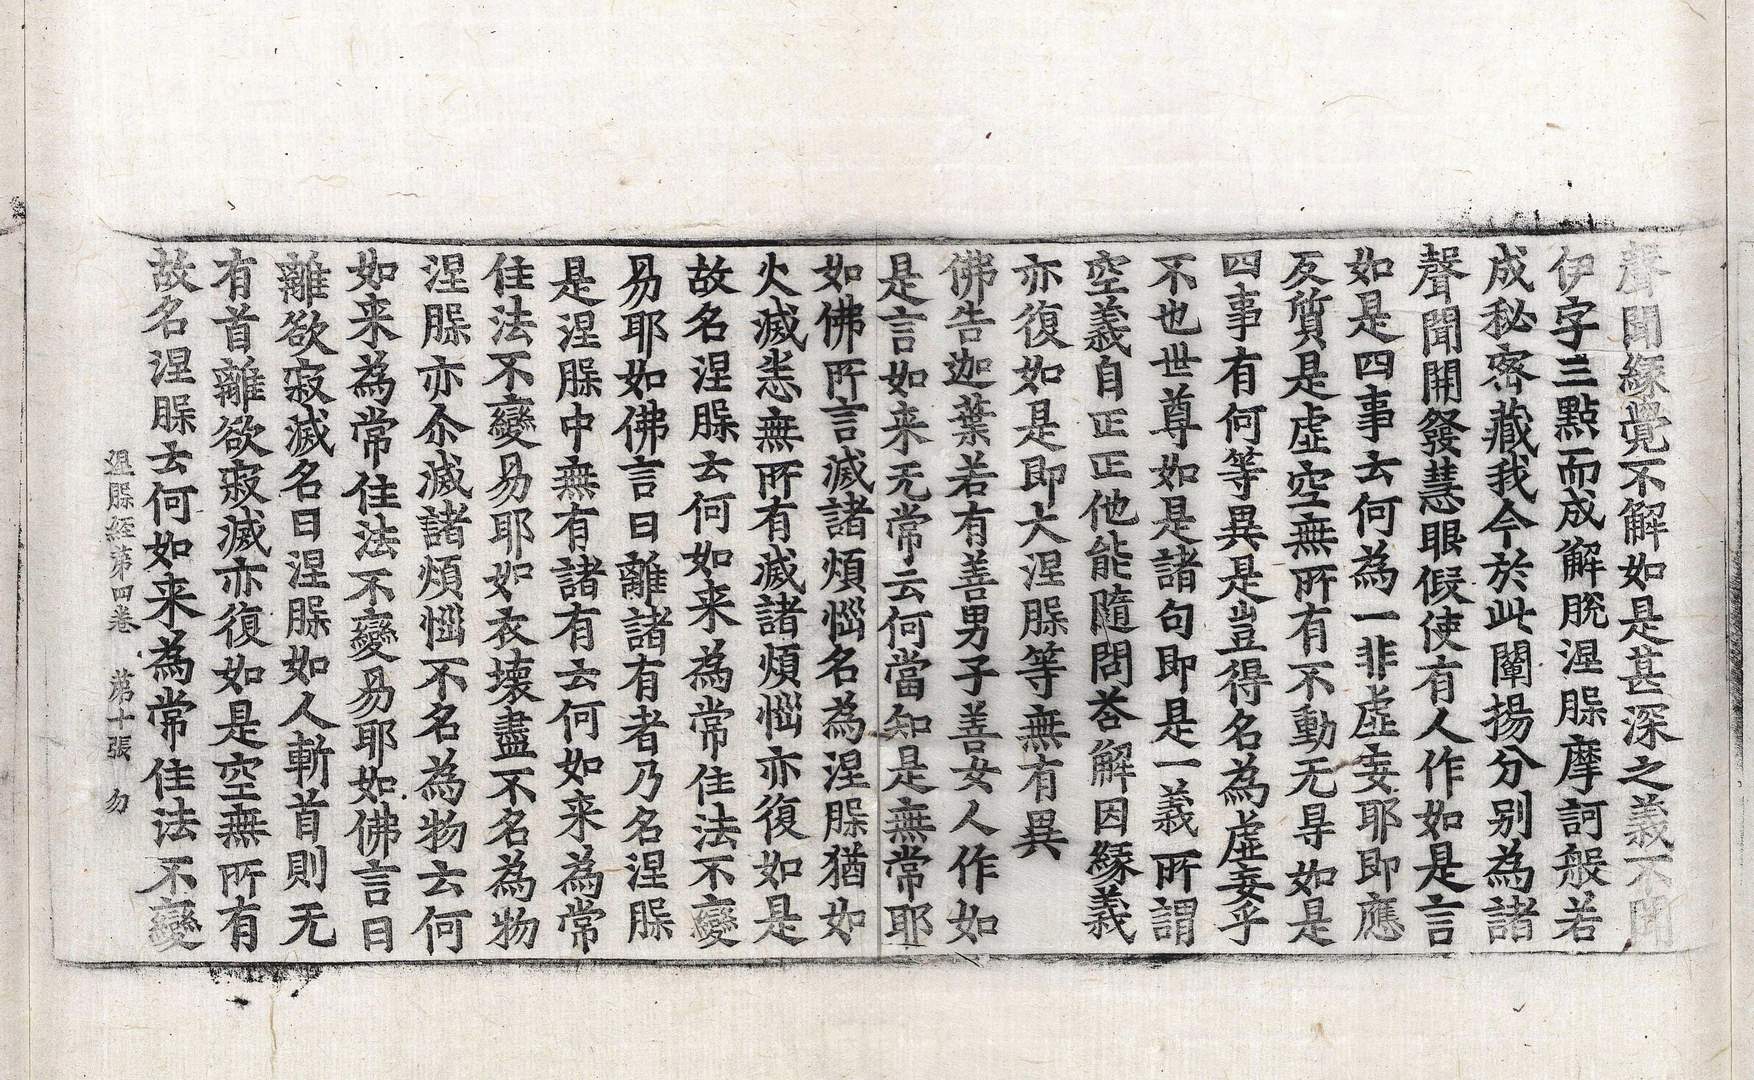 聲聞緣覺不解如是甚深之義不聞
伊字三點而成解脫涅脲摩訶般若
成秘密藏我今於此闡揚分別為諸
聲聞開發慧眼假使有人作如是言
如是四事云何為一非虛妄耶即應
反質是虛空無所有不動无㝵如是
四事有何等異是豈得名為虛妄乎
不也世尊如是諸句即是一義所謂
空義自正正他能隨問荅解因緣義
亦復如是即大涅脲等無有異
佛告迦葉若有善男子善女人作如
是言如来无常云何當知是無常耶
如佛所言滅諸煩惱名為涅脲猶如
火滅悉無所有滅諸煩惱亦復如是
故名涅脲云何如来為常住法不變
易耶如佛言曰離諸有者乃名涅脲
是涅脲中無有諸有云何如来為常
住法不變易耶如衣壞盡不名為物
涅脲亦尒滅諸煩惱不名為物云何
如来為常住法不變易耶如佛言曰
離欲寂滅名曰涅脲如人斬首則无
有首離欲寂滅亦復如是空無所有
故名涅脲云何如来為常住法不變
涅脲経第四卷 第十張 勿